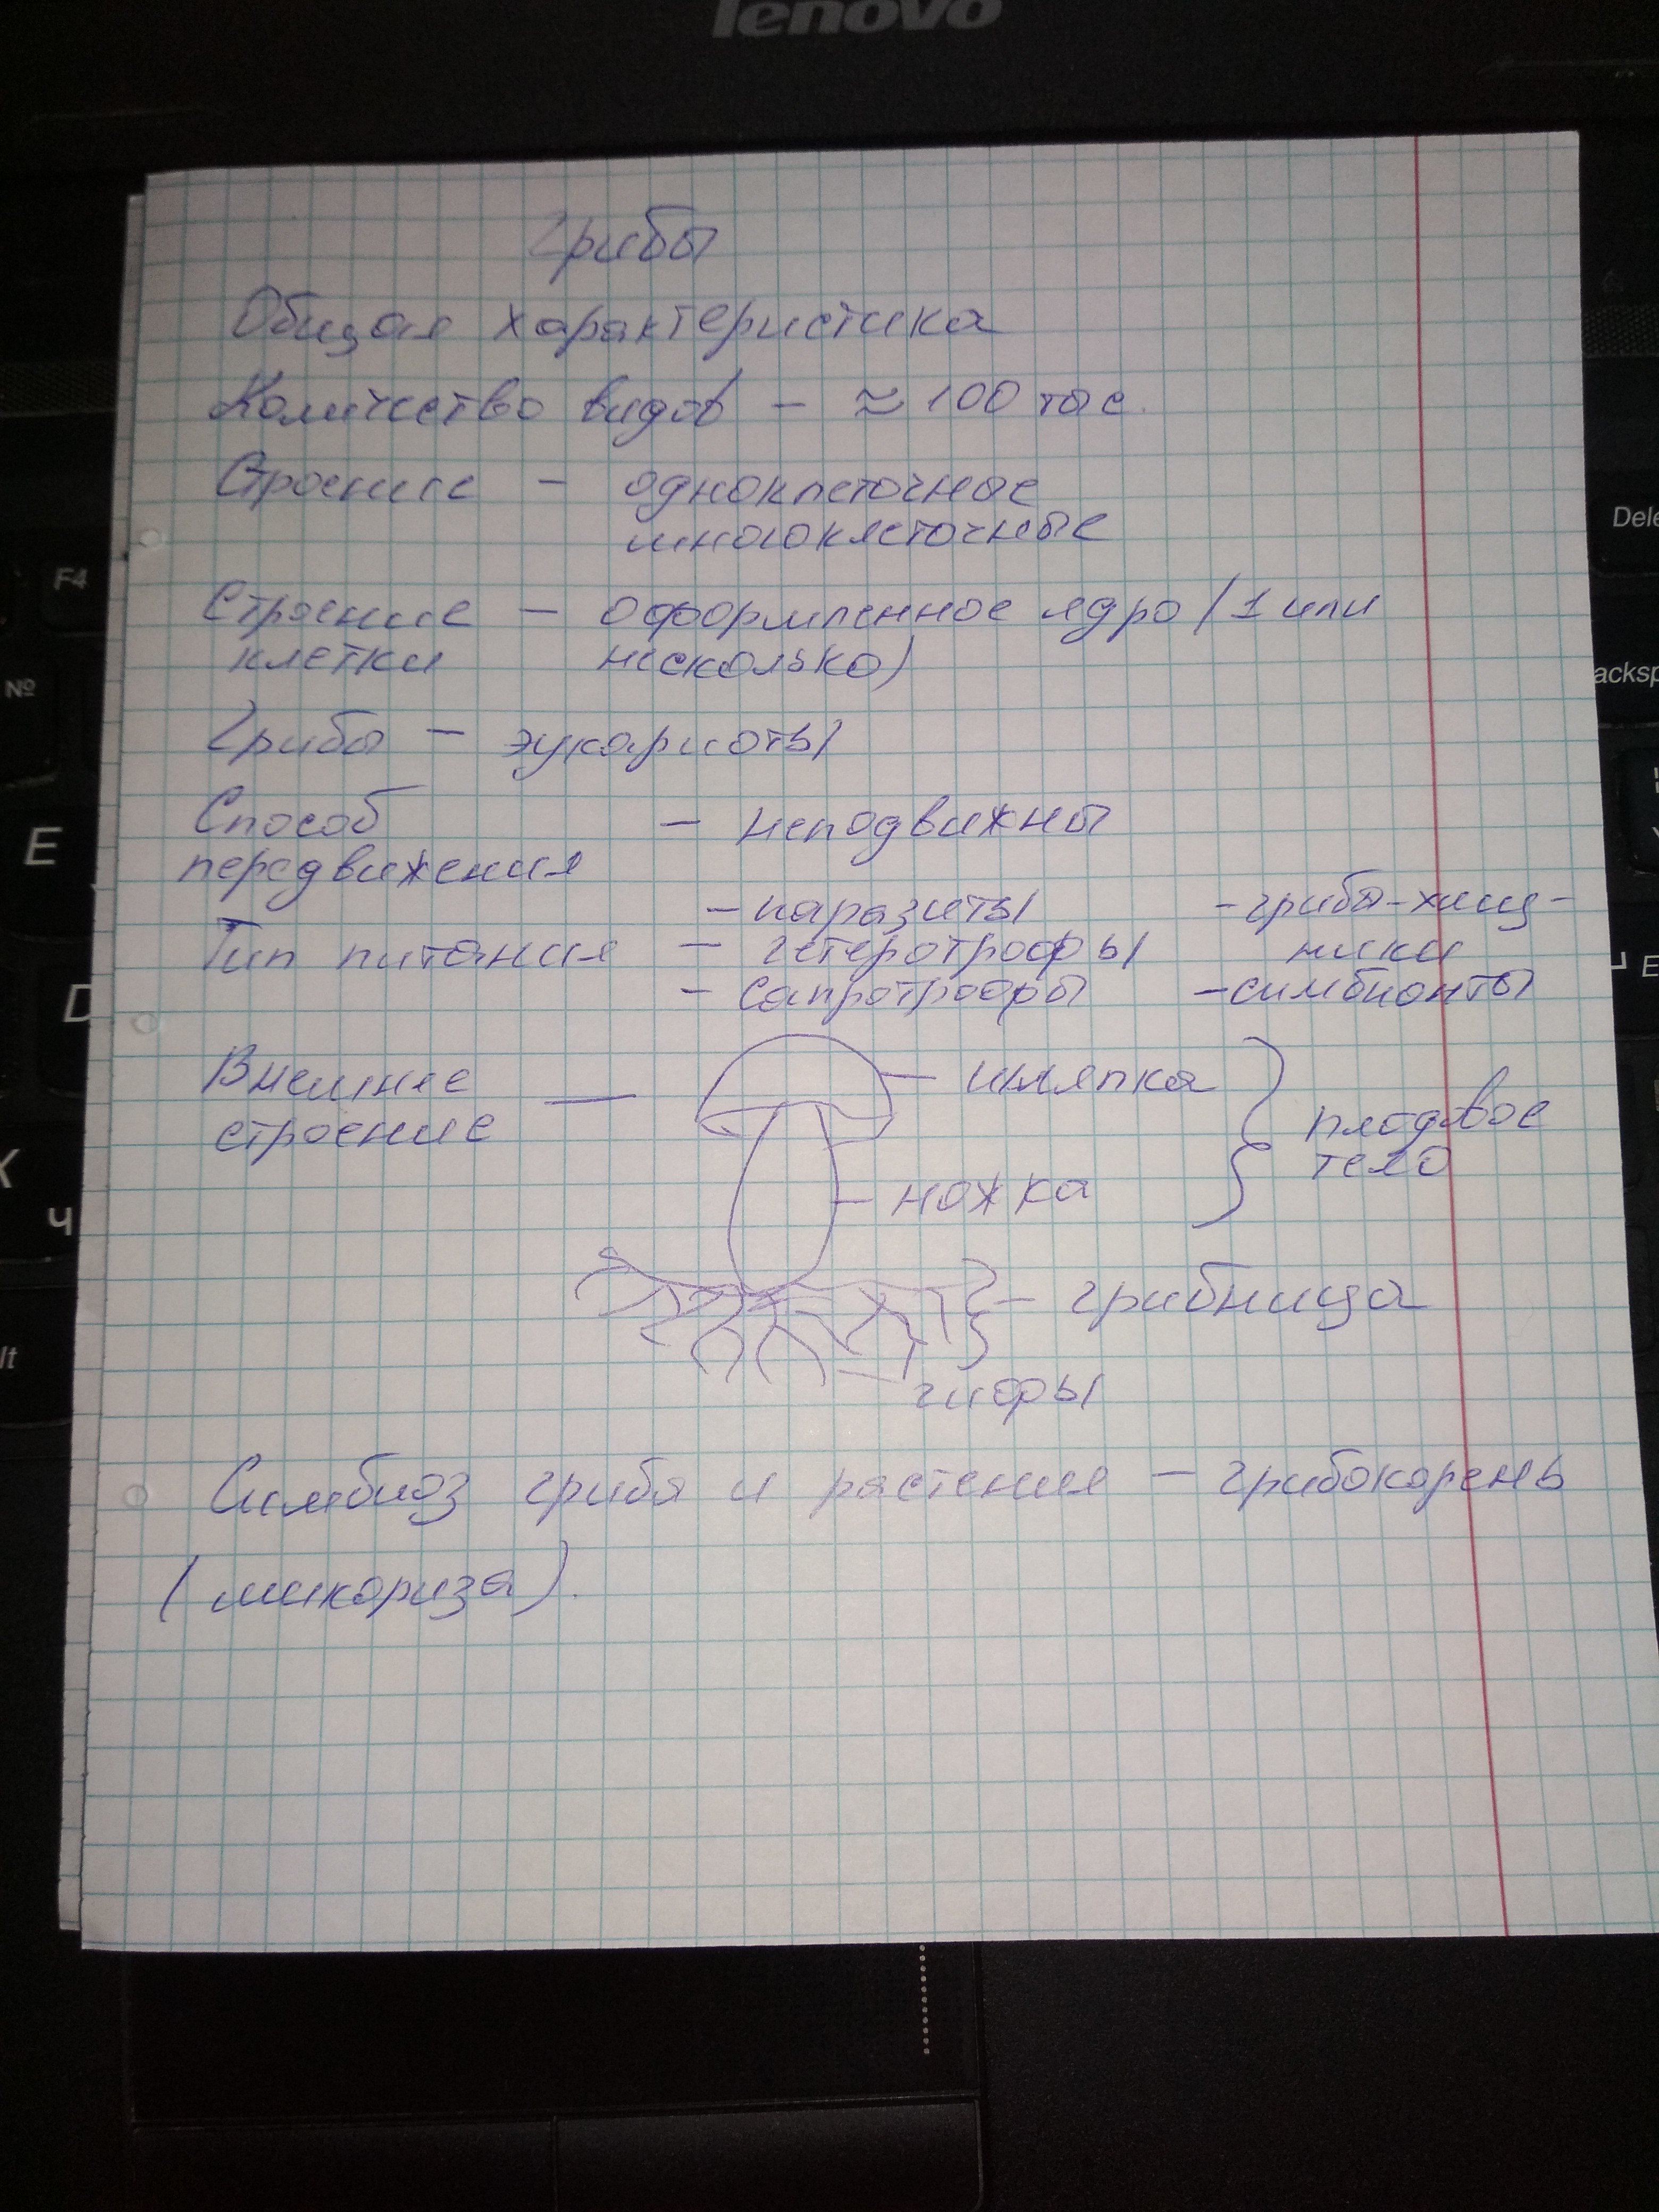 lenovo
Грибы
Общая характеристика
Количество видов - ≈ 100 тыс.
Строение - одноклеточные
многоклеточные
Строение - оформленное ядро (1 или
клетки несколько)
Грибы - эукариоты
Способ - неподвижны
передвижения
- паразиты - грибы-хищ-
Тип питания - гетеротрофы ники
- сапротрофы - симбионты
Внешнее — шляпка
строение плодовое
тело
ножка
грибница
гифы
Симбиоз гриба и растения - грибокорень
(микориза).
F4
Dele
№
acksp
E
E
D
Х
Ч
lt